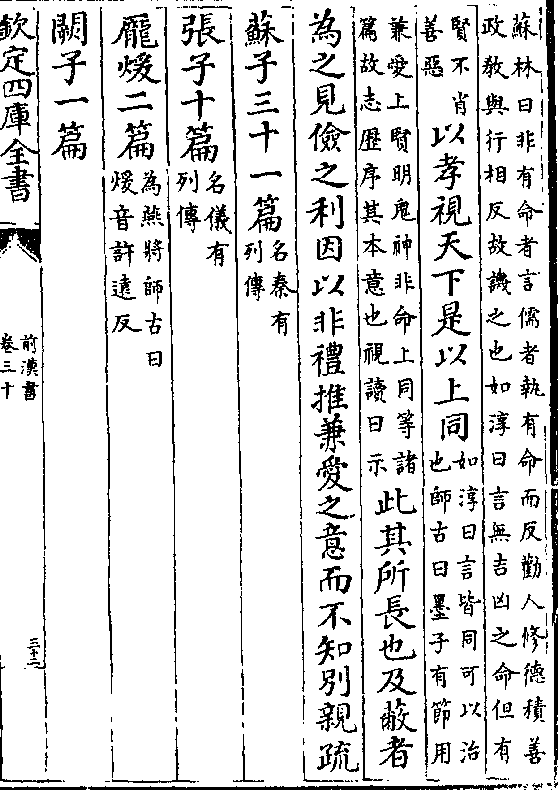 蘇林曰非有命者言儒者執有命而反勸人修德積善
政教與行相反故譏之也如淳曰言無吉凶之命但有
賢不肖
善惡
以孝視天下是以上同
如淳曰言皆同可以治
也師古曰墨子有節用
兼愛上賢明鬼神非命上同等諸
篇故志歴序其本意也視讀曰示
此其所長也及蔽者
為之見儉之利因以非禮推兼愛之意而不知別親疏
蘇子三十一篇
名秦有
列傳
張子十篇
名儀有
列傳
龐煖二篇
為燕將師古曰
煖音許逺反
闕子一篇
欽定四庫全書
前漢書
卷三十
三十二